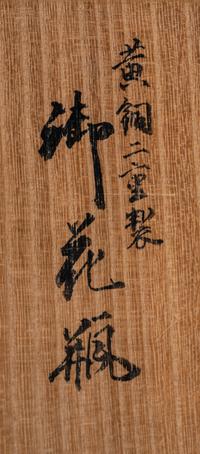 黄銅二重製
御花瓶